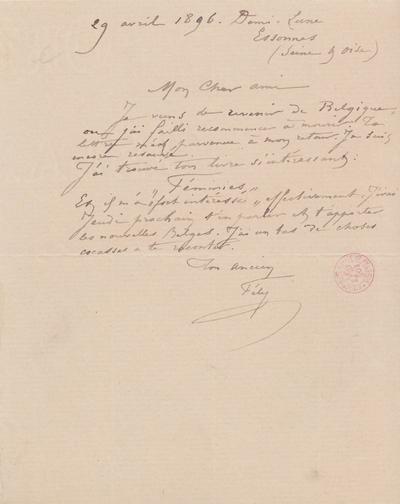 29 avril 1896. Demi-Lune
Essonnes
(Seine & Oise)
Mon Cher ami
Je viens de revenir de Belgique,
où j'ai failli recommencer à mourir. Ta
lettre m'est parvenue à mon retour. Je suis
encore
J'ai trouvé ton livre si intéressant:
"Femmes"
Et il m'a fort intéressé "effectivement. J'irai
Jeudi prochain t'en parler et t'apporter
les nouvelles Belges. J'ai un tas de choses
cocasses à te raconter.
Ton ancien
Fély